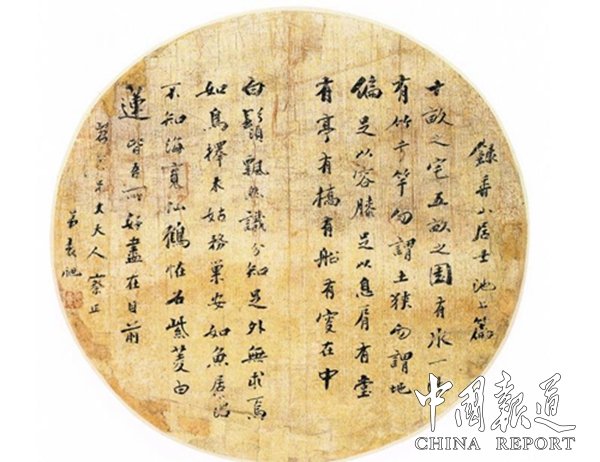 錄香山居士池上篇
十畝之宅五畝之園有水一
有竹千竿勿謂土狹勿謂地
偏足以容膝足以息肩有堂
有亭有橋有船有叟在中
白鬚飄然識分知足外無求焉
如鳥擇木姑務巢安如魚居
不知海寬靈鶴怪石紫菱白
蓮皆吾所好盡在目前
年丈大人察正
中國報道
CHINA REPORT